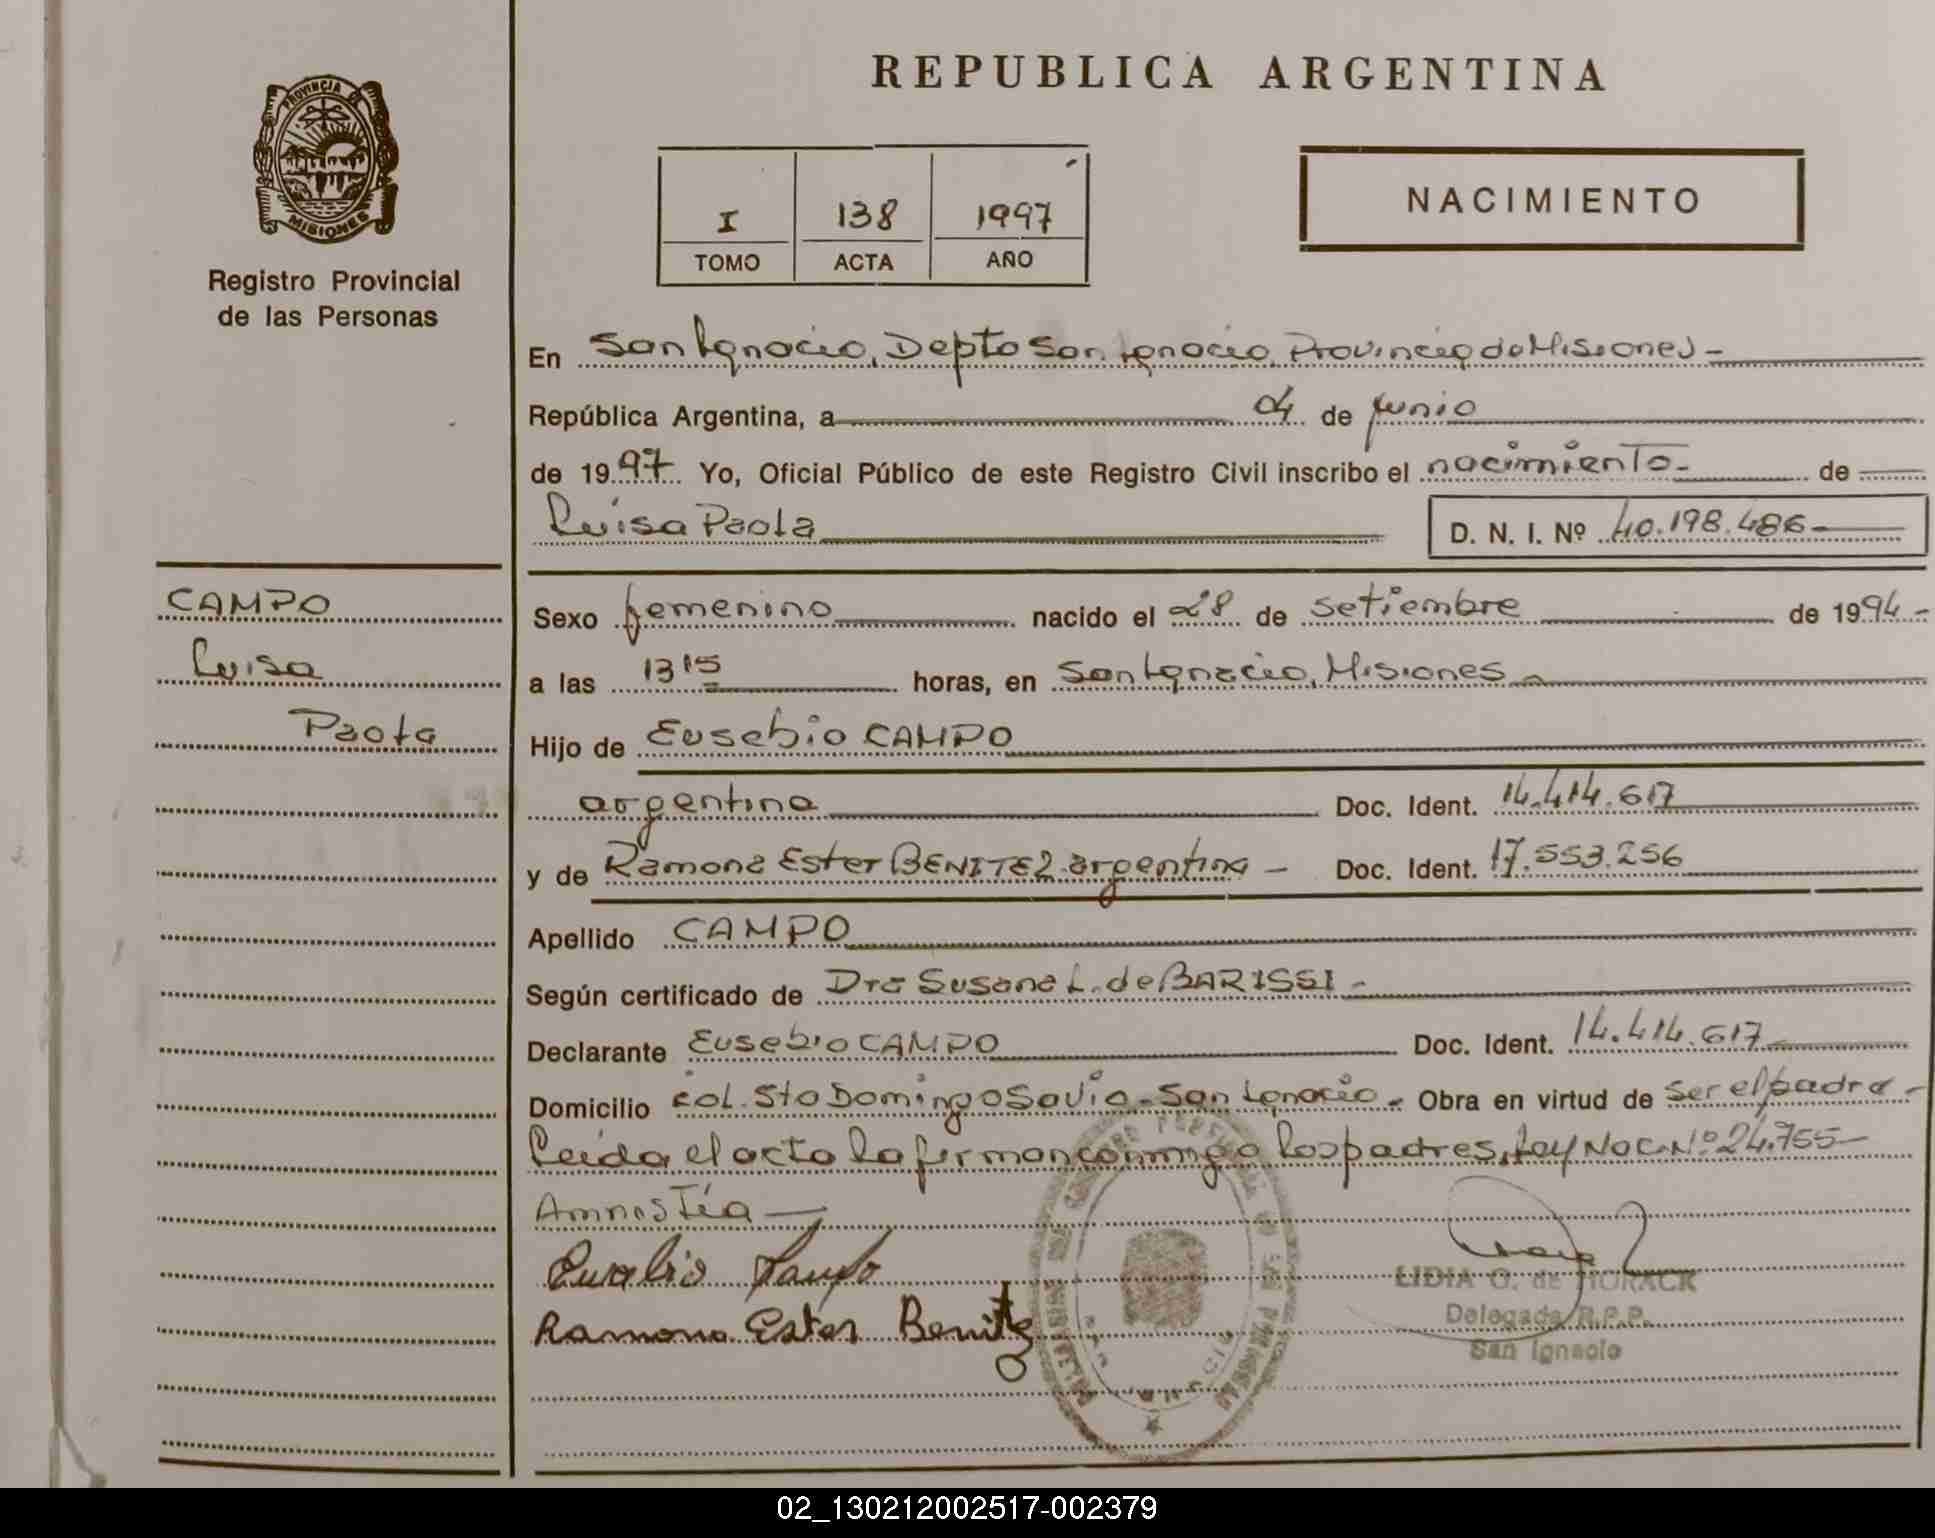 REPUBLICA ARGENTINA
PROVINCIA DE
MISIONES
Registro Provincial
de las Personas
I 138 1997
TOMO ACTA AÑO
NACIMIENTO
En San Ignacio, Depto San Ignacio, Provincia de Misiones-
República Argentina, a 04 de junio
de 1997 Yo, Oficial Público de este Registro Civil inscribo el nacimiento- de
Luisa Paola
D. N. I. Nº 40.198.486-
CAMPO
Luisa
Paola
Sexo femenino nacido el 28 de setiembre de 1994-
a las 13 15 horas, en San Ignacio, Misiones
Hijo de Eusebio CAMPO
argentina Doc. Ident. 14.414.617
y de Ramona Ester BENITEZ argentina - Doc. Ident. 17.553.256
Apellido CAMPO
Según certificado de Dra Susana L. de BARISSI -
Declarante Eusebio CAMPO Doc. Ident. 14.414.617
Domicilio col. Sto Domingo Savio - San Ignacio - Obra en virtud de ser el padre -
Leida el acta la firman conmigo los padres, Ley Nac. Nº 24.755-
Amnistía -
Eusebio Campo
Ramona Ester Benitez
LIDIA O. de HORACK
Delegada R.P.P.
San Ignacio
02_130212002517-002379